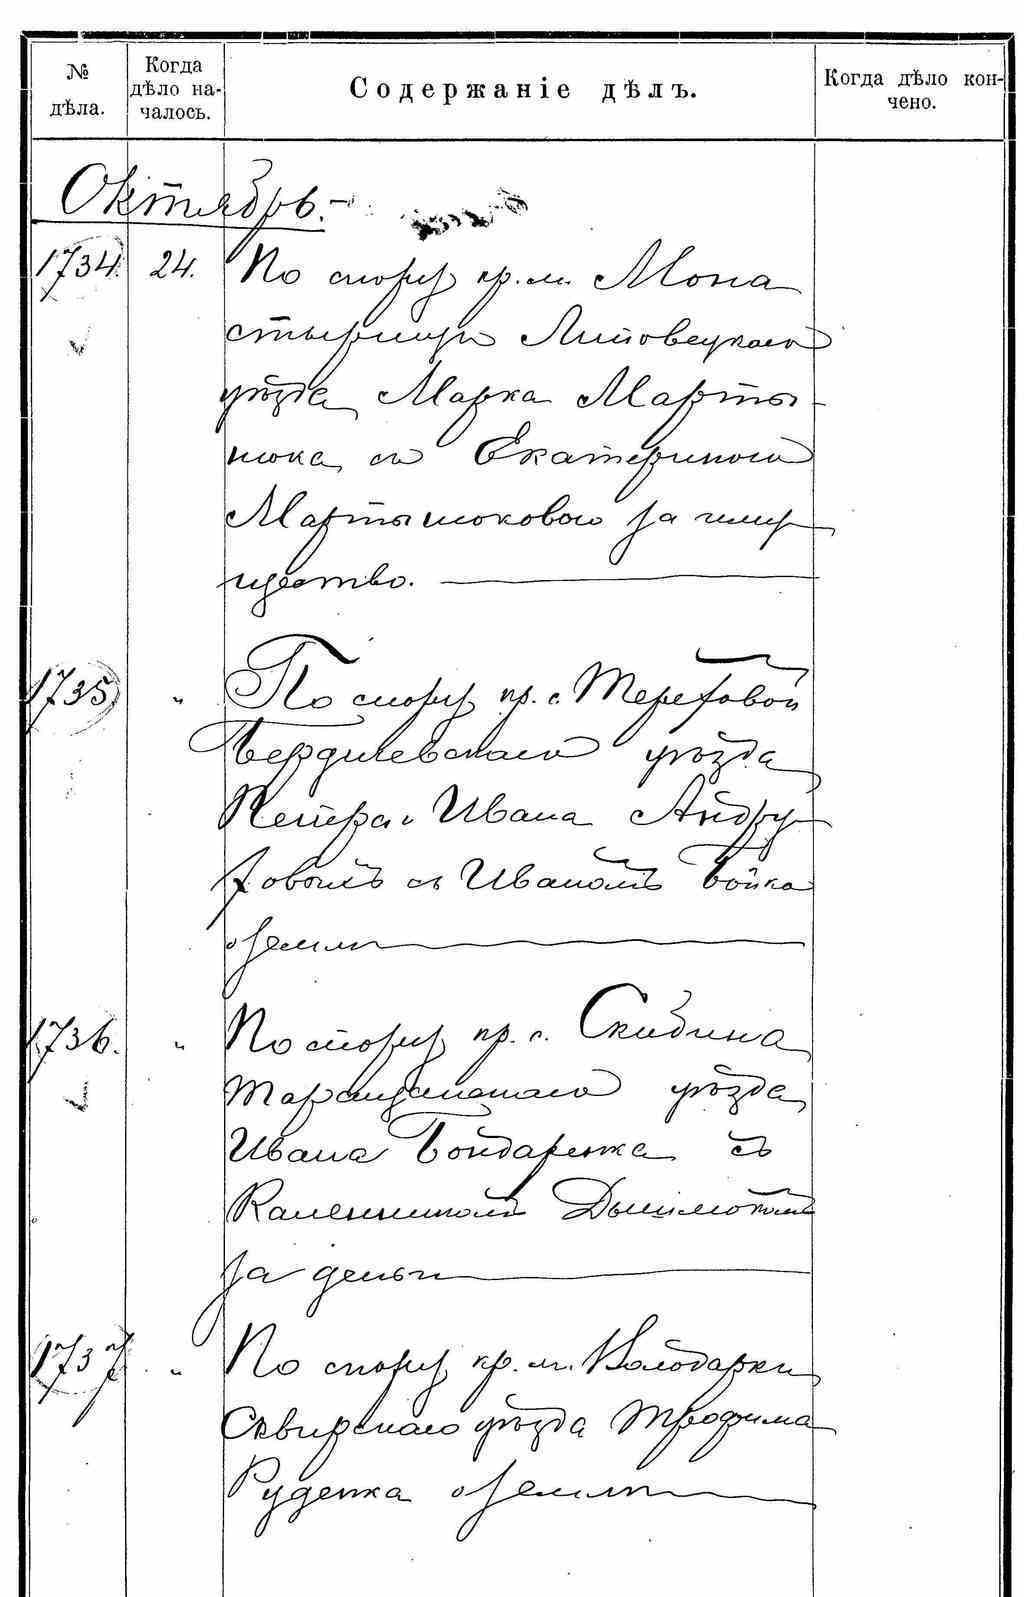 № дѣла.
Когда дѣло на-
чалось.
Содержаніе дѣлъ.
Когда дѣло кон-
чено.
Октябрь.-
1734. 24. По спору кр. м. Мона
стырища Липовецкаго
уѣзда Марка Марты-
нюка съ Екатериною
Мартынюковою за иму
щество.
1735 " По спору кр. с. Тереховой
Бердичевскаго уѣзда
Петра и Ивана Андру
ховыхъ съ Иваномъ Бойко
о земли
1736. " По спору кр. с. Скибина
Таращанскаго уѣзда
Ивана Бондаренка съ
Каленникомъ
за деньги
1737 " По спору кр. м. Володарки
Сквирскаго уѣзда Трофима
Руденка о земли